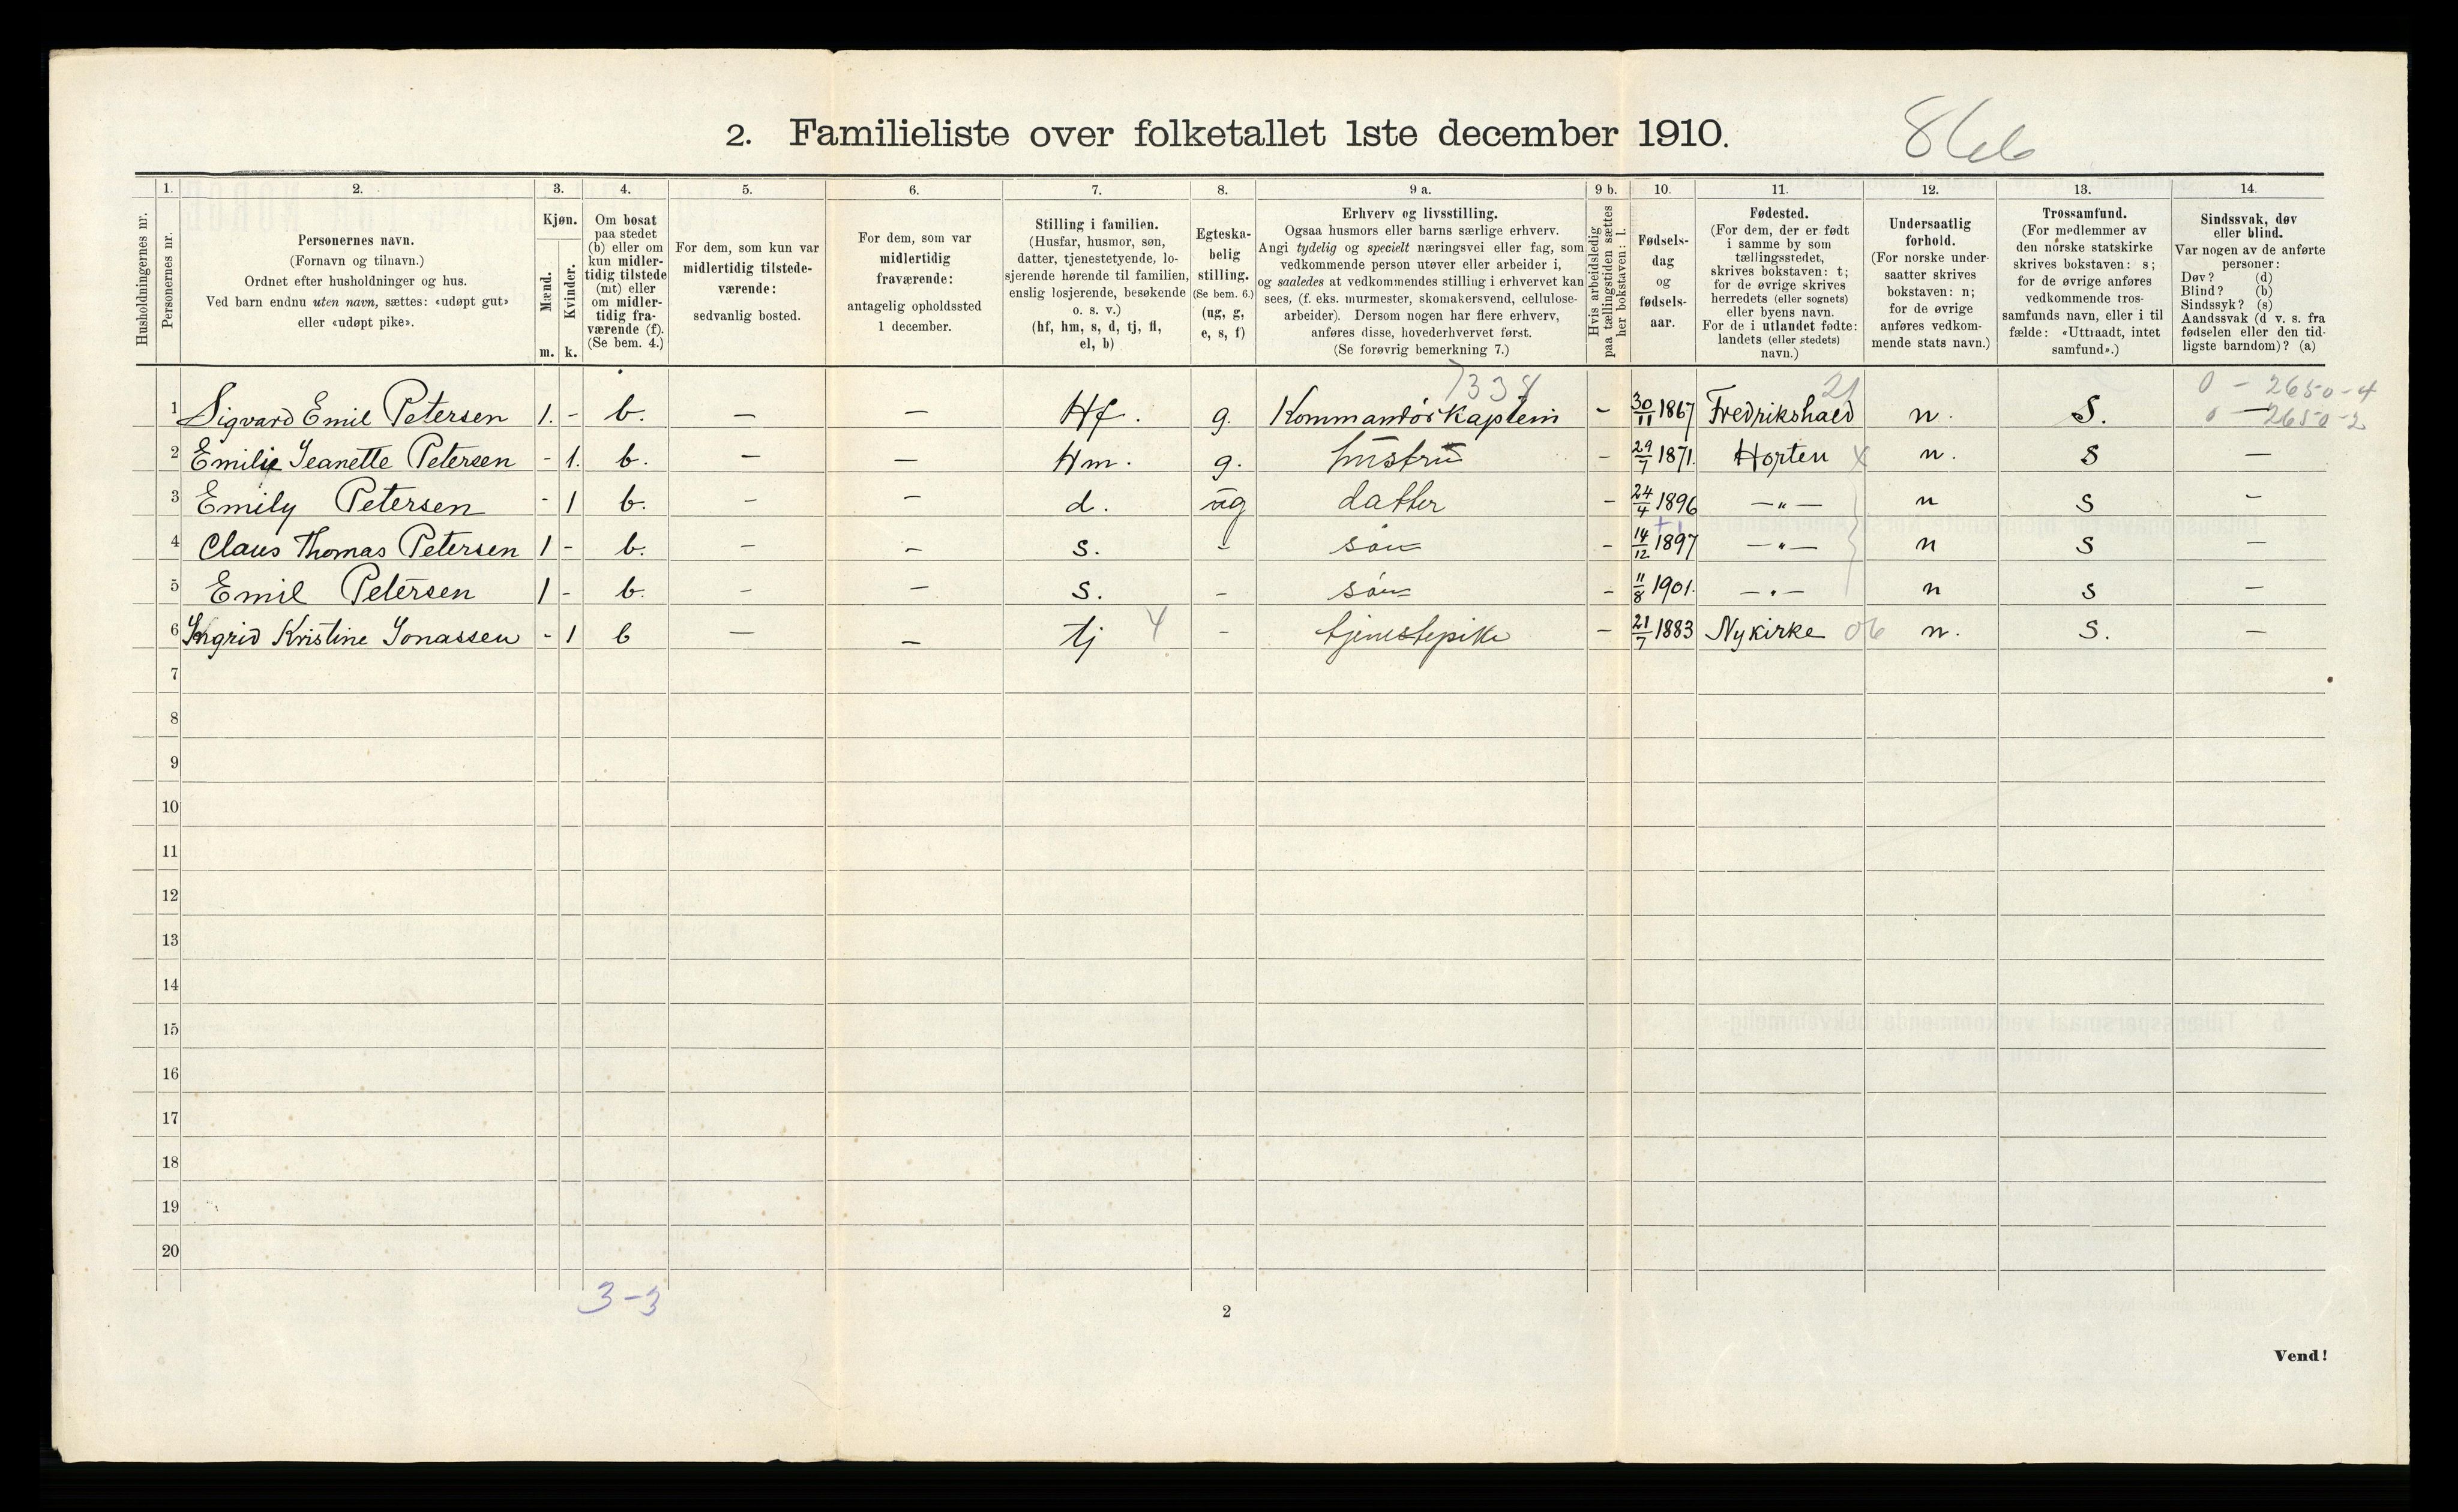 2. Familieliste over folketallet 1ste december 1910.
1. 2. 3. 4. 5. 6. 7. 8. 9 a. 9 b. 10. 11. 12. 13. 14.
Husholdningernes nr.
Personernes nr.
Personernes navn.
(Fornavn og tilnavn.)
Ordnet efter husholdninger og hus.
Ved barn endnu uten navn, sættes: «udøpt gut»
eller «udøpt pike».
Kjøn.
Mænd.
Kvinder.
m. k.
Om bosat
paa stedet
(b) eller om
kun midler-
tidig tilstede
(mt) eller
om midler-
tidig fra-
værende (f).
(Se bem. 4.)
For dem, som kun var
midlertidig tilstede-
værende:
sedvanlig bosted.
For dem, som var
midlertidig
fraværende:
antagelig opholdssted
1 december.
Stilling i familien.
(Husfar, husmor, søn,
datter, tjenestetyende, lo-
sjerende hørende til familien,
enslig losjerende, besøkende
o. s. v.)
(hf, hm, s, d, tj, fl,
el, b)
Egteska-
belig
stilling.
(Se bem. 6.)
(ug, g,
e, s, f)
Erhverv og livsstilling.
Ogsaa husmors eller barns særlige erhverv.
Angi tydelig og specielt næringsvei eller fag, som
vedkommende person utøver eller arbeider i,
og saaledes at vedkommendes stilling i erhvervet kan
sees, (f. eks. murmester, skomakersvend, cellulose-
arbeider). Dersom nogen har flere erhverv,
anføres disse, hovederhvervet først.
(Se forøvrig bemerkning 7.)
Hvis arbeidsledig
paa tællingstiden sættes
her bokstaven: l.
Fødsels-
dag
og
fødsels-
aar.
Fødested.
(For dem, der er født
i samme by som
tællingsstedet,
skrives bokstaven: t;
for de øvrige skrives
herredets (eller sognets)
eller byens navn.
For de i utlandet fødte:
landets (eller stedets)
navn.)
Undersaatlig
forhold.
(For norske under-
saatter skrives
bokstaven: n;
for de øvrige
anføres vedkom-
mende stats navn.)
Trossamfund.
(For medlemmer av
den norske statskirke
skrives bokstaven: s;
for de øvrige anføres
vedkommende tros-
samfunds navn, eller i til
fælde: «Uttraadt, intet
samfund».)
Sindssvak, døv
eller blind.
Var nogen av de anførte
personer:
Døv? (d)
Blind? (b)
Sindssyk? (s)
Aandssvak (d v. s. fra
fødselen eller den tid-
ligste barndom)? (a)
21 0 - 2650-4
1 Sigvard Emil Petersen 1. - b. — — Hf. g. Kommandørkaptein - 30/11 1867 Fredrikshald n. S. —
0 - 2650-2
2 Emilie Jeanette Petersen - 1. b. — — Hm. g. hustru - 29/7 1871. Horten x n. S —
3 Emily Petersen - 1 b. - — d. ug datter - 24/4 1896 —„— n S -
4 Claus Thomas Petersen 1 - b. - - s. - søn - 14/12 1897 —„— n S —
5 Emil Petersen 1 - b. - — s. - søn - 11/8 1901. —„— n S —
6 Ingrid Kristine Jonassen - 1 b — — tj 4 - tjenestepike — 21/7 1883 Nykirke 06 n. S. —
7
8
9
10
11
12
13
14
15
16
17
18
19
20
3-3
2
Vend!